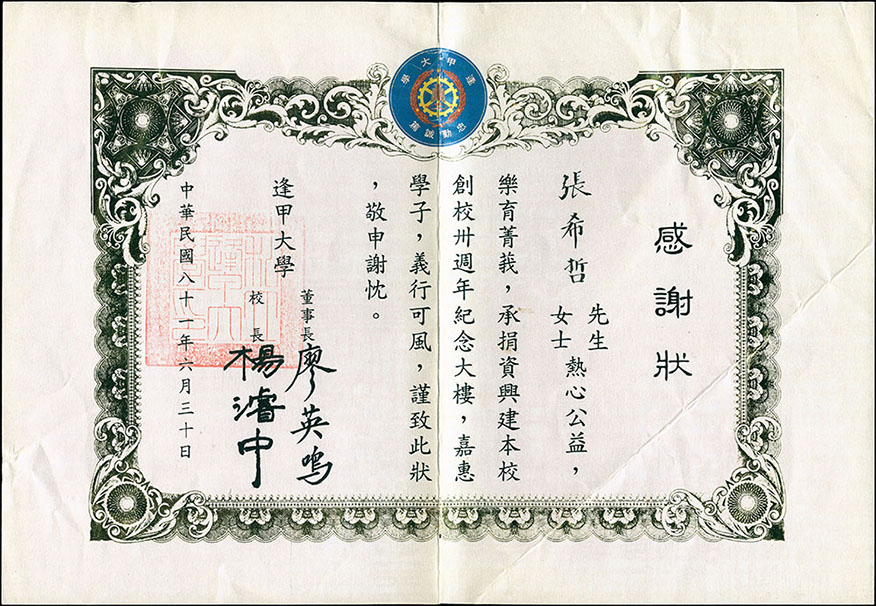 逢甲大學
忠勤誠篤
感謝狀
張希哲 先生
女士 熱心公益，
樂育菁莪，承捐資興建本校
創校卅週年紀念大樓，嘉惠
學子，義行可風，謹致此狀
，敬申謝忱。
逢甲大學
董事長 廖英鳴
校長 楊濬中
中華民國八十一年六月三十日